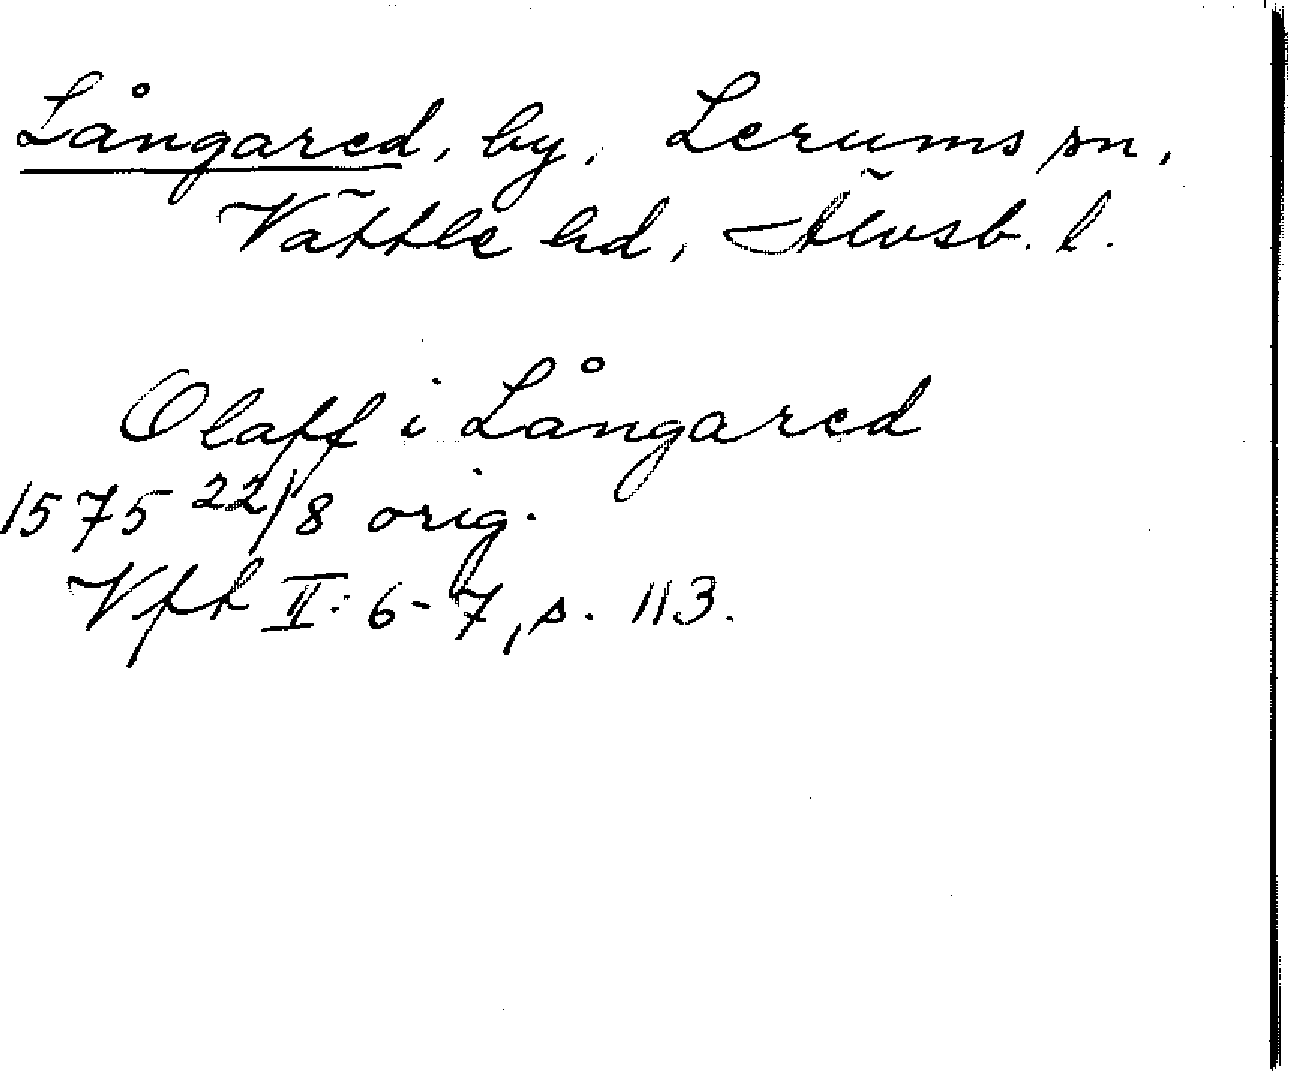 Långared, by, Lerums sn,
Vättle hd, Älvsb. l.
Olaff i Långared
1575 22/8 orig.
Vft II: 6-7, s. 113.